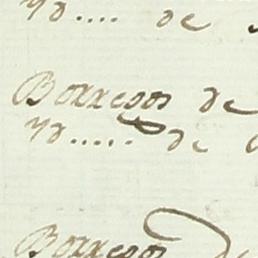 yd.... de
Borregos de
yd..... de
Borregos de